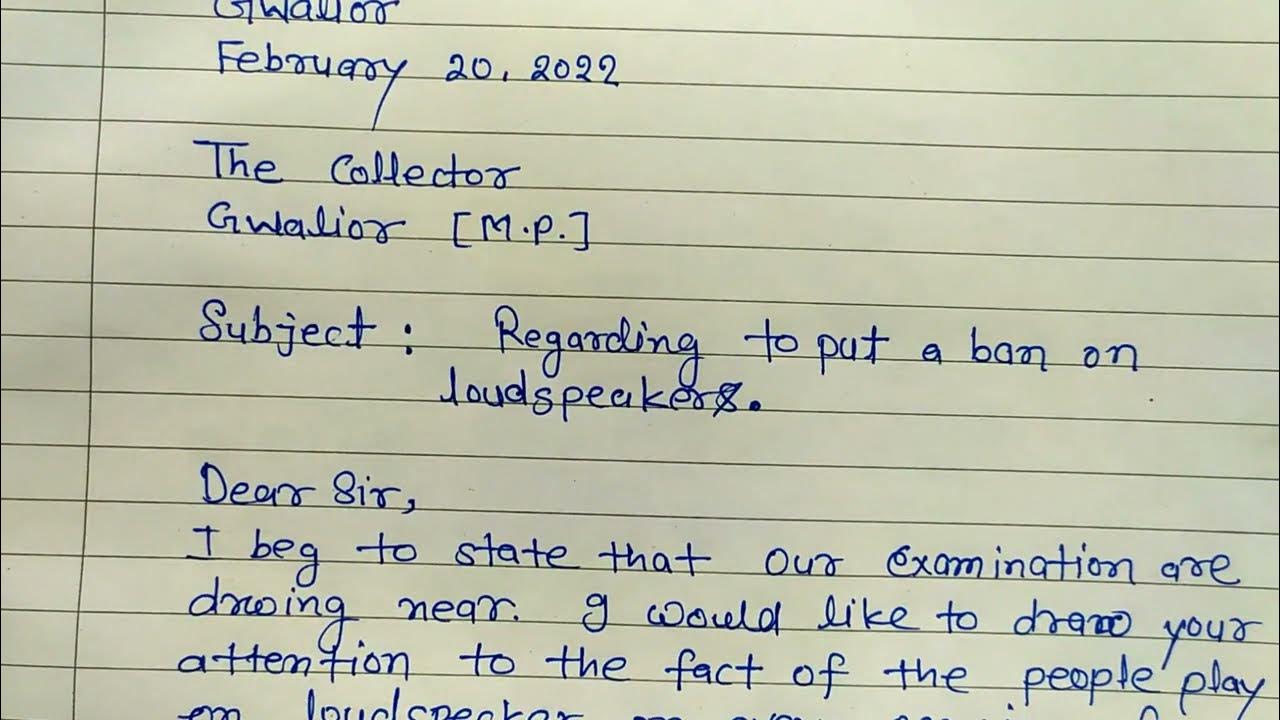 Gwalior
February 20, 2022
The Collector
Gwalior [M.P.]
Subject : Regarding to put a ban on
loudspeakers.
Dear Sir,
I beg to state that our examination are
drwing near. I would like to draw your
attention to the fact of the people play
on loudspeaker